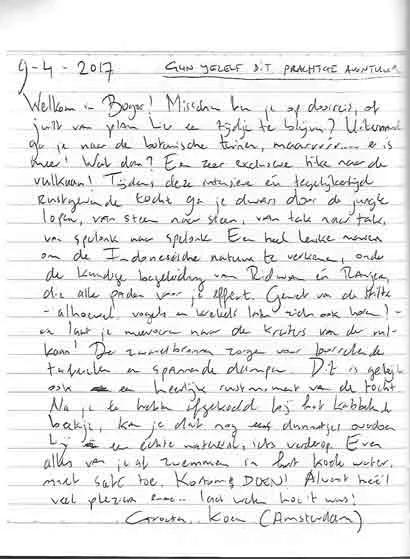 9-4-2017 GUN JEZELF DIT PRACHTIGE AVONTUUR
Welkom in Bogor! Misschien ben je op doorreis, of
juist van plan hier een tijdje te blijven? Uiteraard
ga je naar de botanische tuinen, maarrrr... er is
meer! Wat dan? Een zeer exclusieve hike naar de
vulkaan! Tijdens deze intensieve én tegelijkertijd
rustgevende tocht ga je dwars door de jungle
lopen, van steen naar steen, van tak naar tak,
van spelonk naar spelonk. Een heel leuke manier
om de Indonesische natuur te verkennen, onder
de kundige begeleiding van Ridwan én
die alle paden voor je effent. Geniet van de stilte
- alhoewel, vogels en krekels laten zich ook horen! -
en laat je meevoeren naar de krater van de vul-
kaan! De zwavelbronnen zorgen voor
en spannende dampen. Dit is gelijk
ook een heerlijk rustmoment van de tocht.
Na je te hebben afgekoeld bij het kabbelende
beekje, kan je dat nog eens dunnetjes overdoen
bij een echte waterval, iets verderop. Even
alles van je af zwemmen in het koele water,
moet toe. Kortom: DOEN! Alvast héél
veel plezier en... laat weten hoe it was!
Groeten, Koen (Amsterdam)